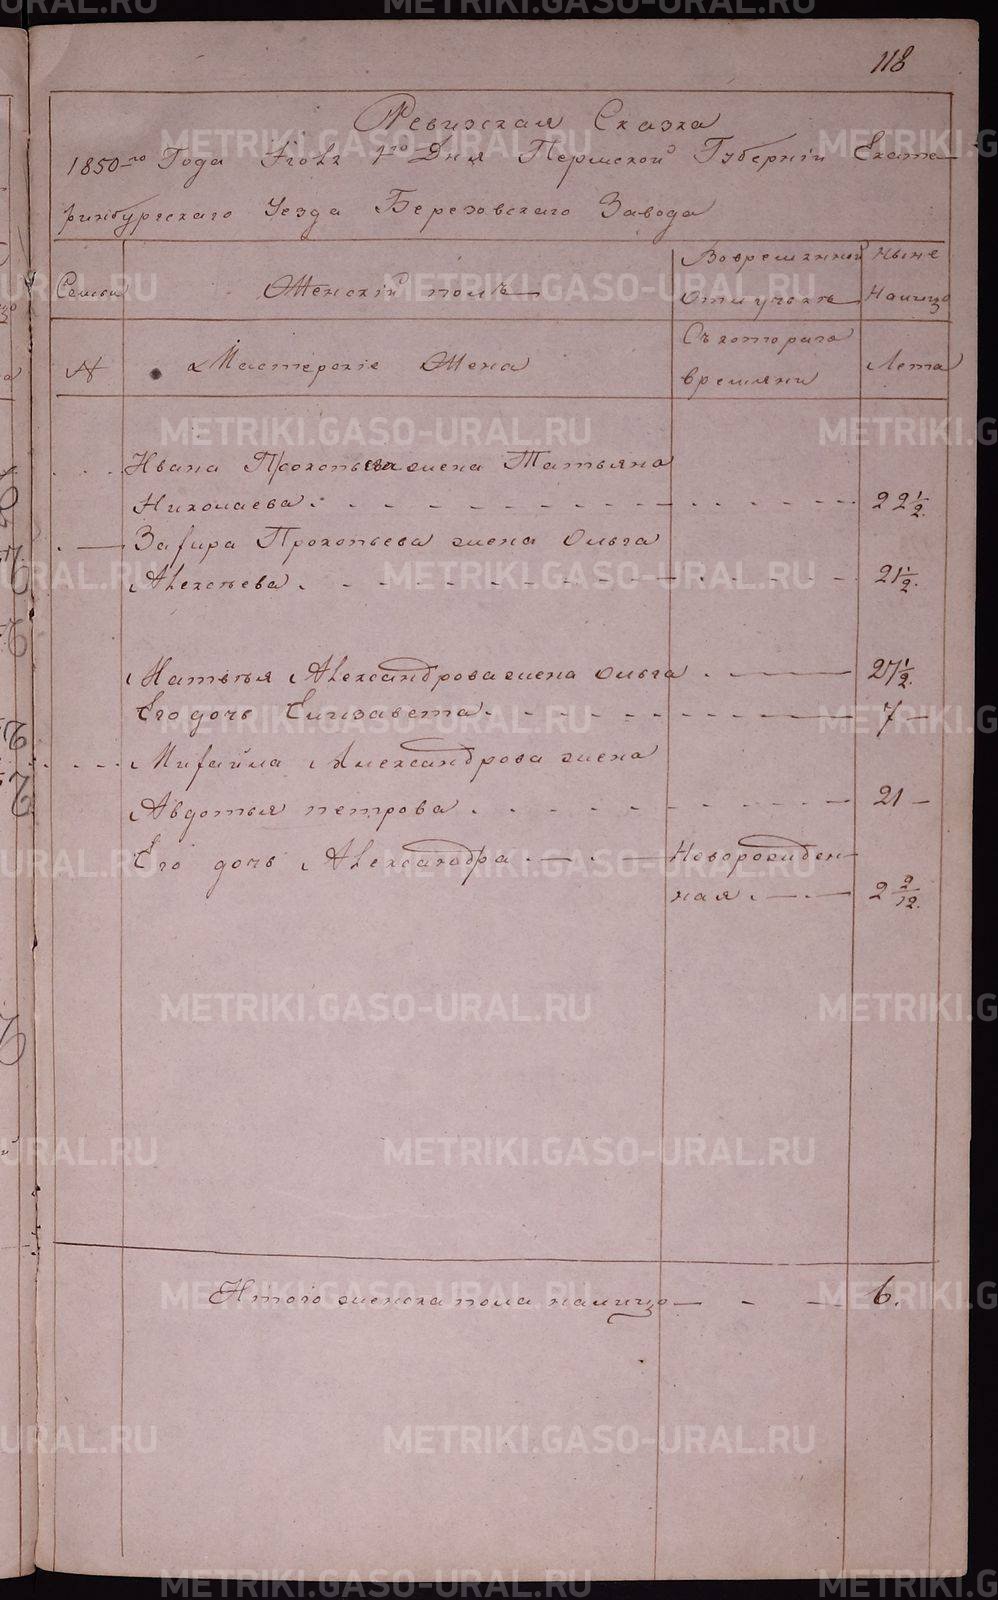 118
Ревизская Сказка
1850-го Года Июля 1го Дня Пермской Губернiи Екате-
ринбургскаго Уезда Березовскаго Завода
Семьи
Женскiй полъ
Вовременной отлучьке
Ныне налицо
№
Мастерскiе Жена
Съ котораго времяни
Лета
Ивана Прокопьева жена Татьяна
Николаева. 22 1/2.
Захара Прокопьева жена Ольга
Алексеева. 21 1/2.
Александрова жена Ольга 27 1/2.
Его дочь Елизавета. 7
Михайла Александрова жена
Авдотья петрова. 21
Его дочь Александра. Новорожден-
ная. 2 2/12.
Итого женска пола налицо 6.
METRIKI.GASO-URAL.RU